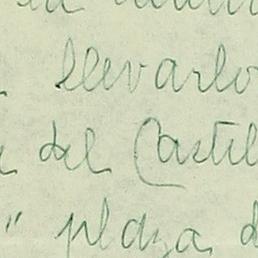 llevarlo
del Castil
" plaza d